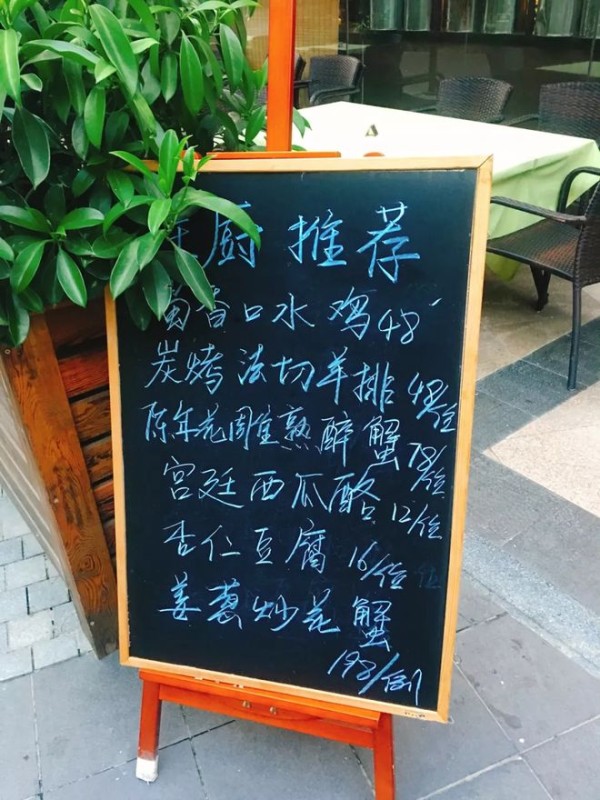 厨推荐
蜀香口水鸡48
炭烤法切羊排48/位
陈年花雕熟醉蟹78/位
宫廷西瓜酪12/位
杏仁豆腐16/位
姜葱炒花蟹
198/例